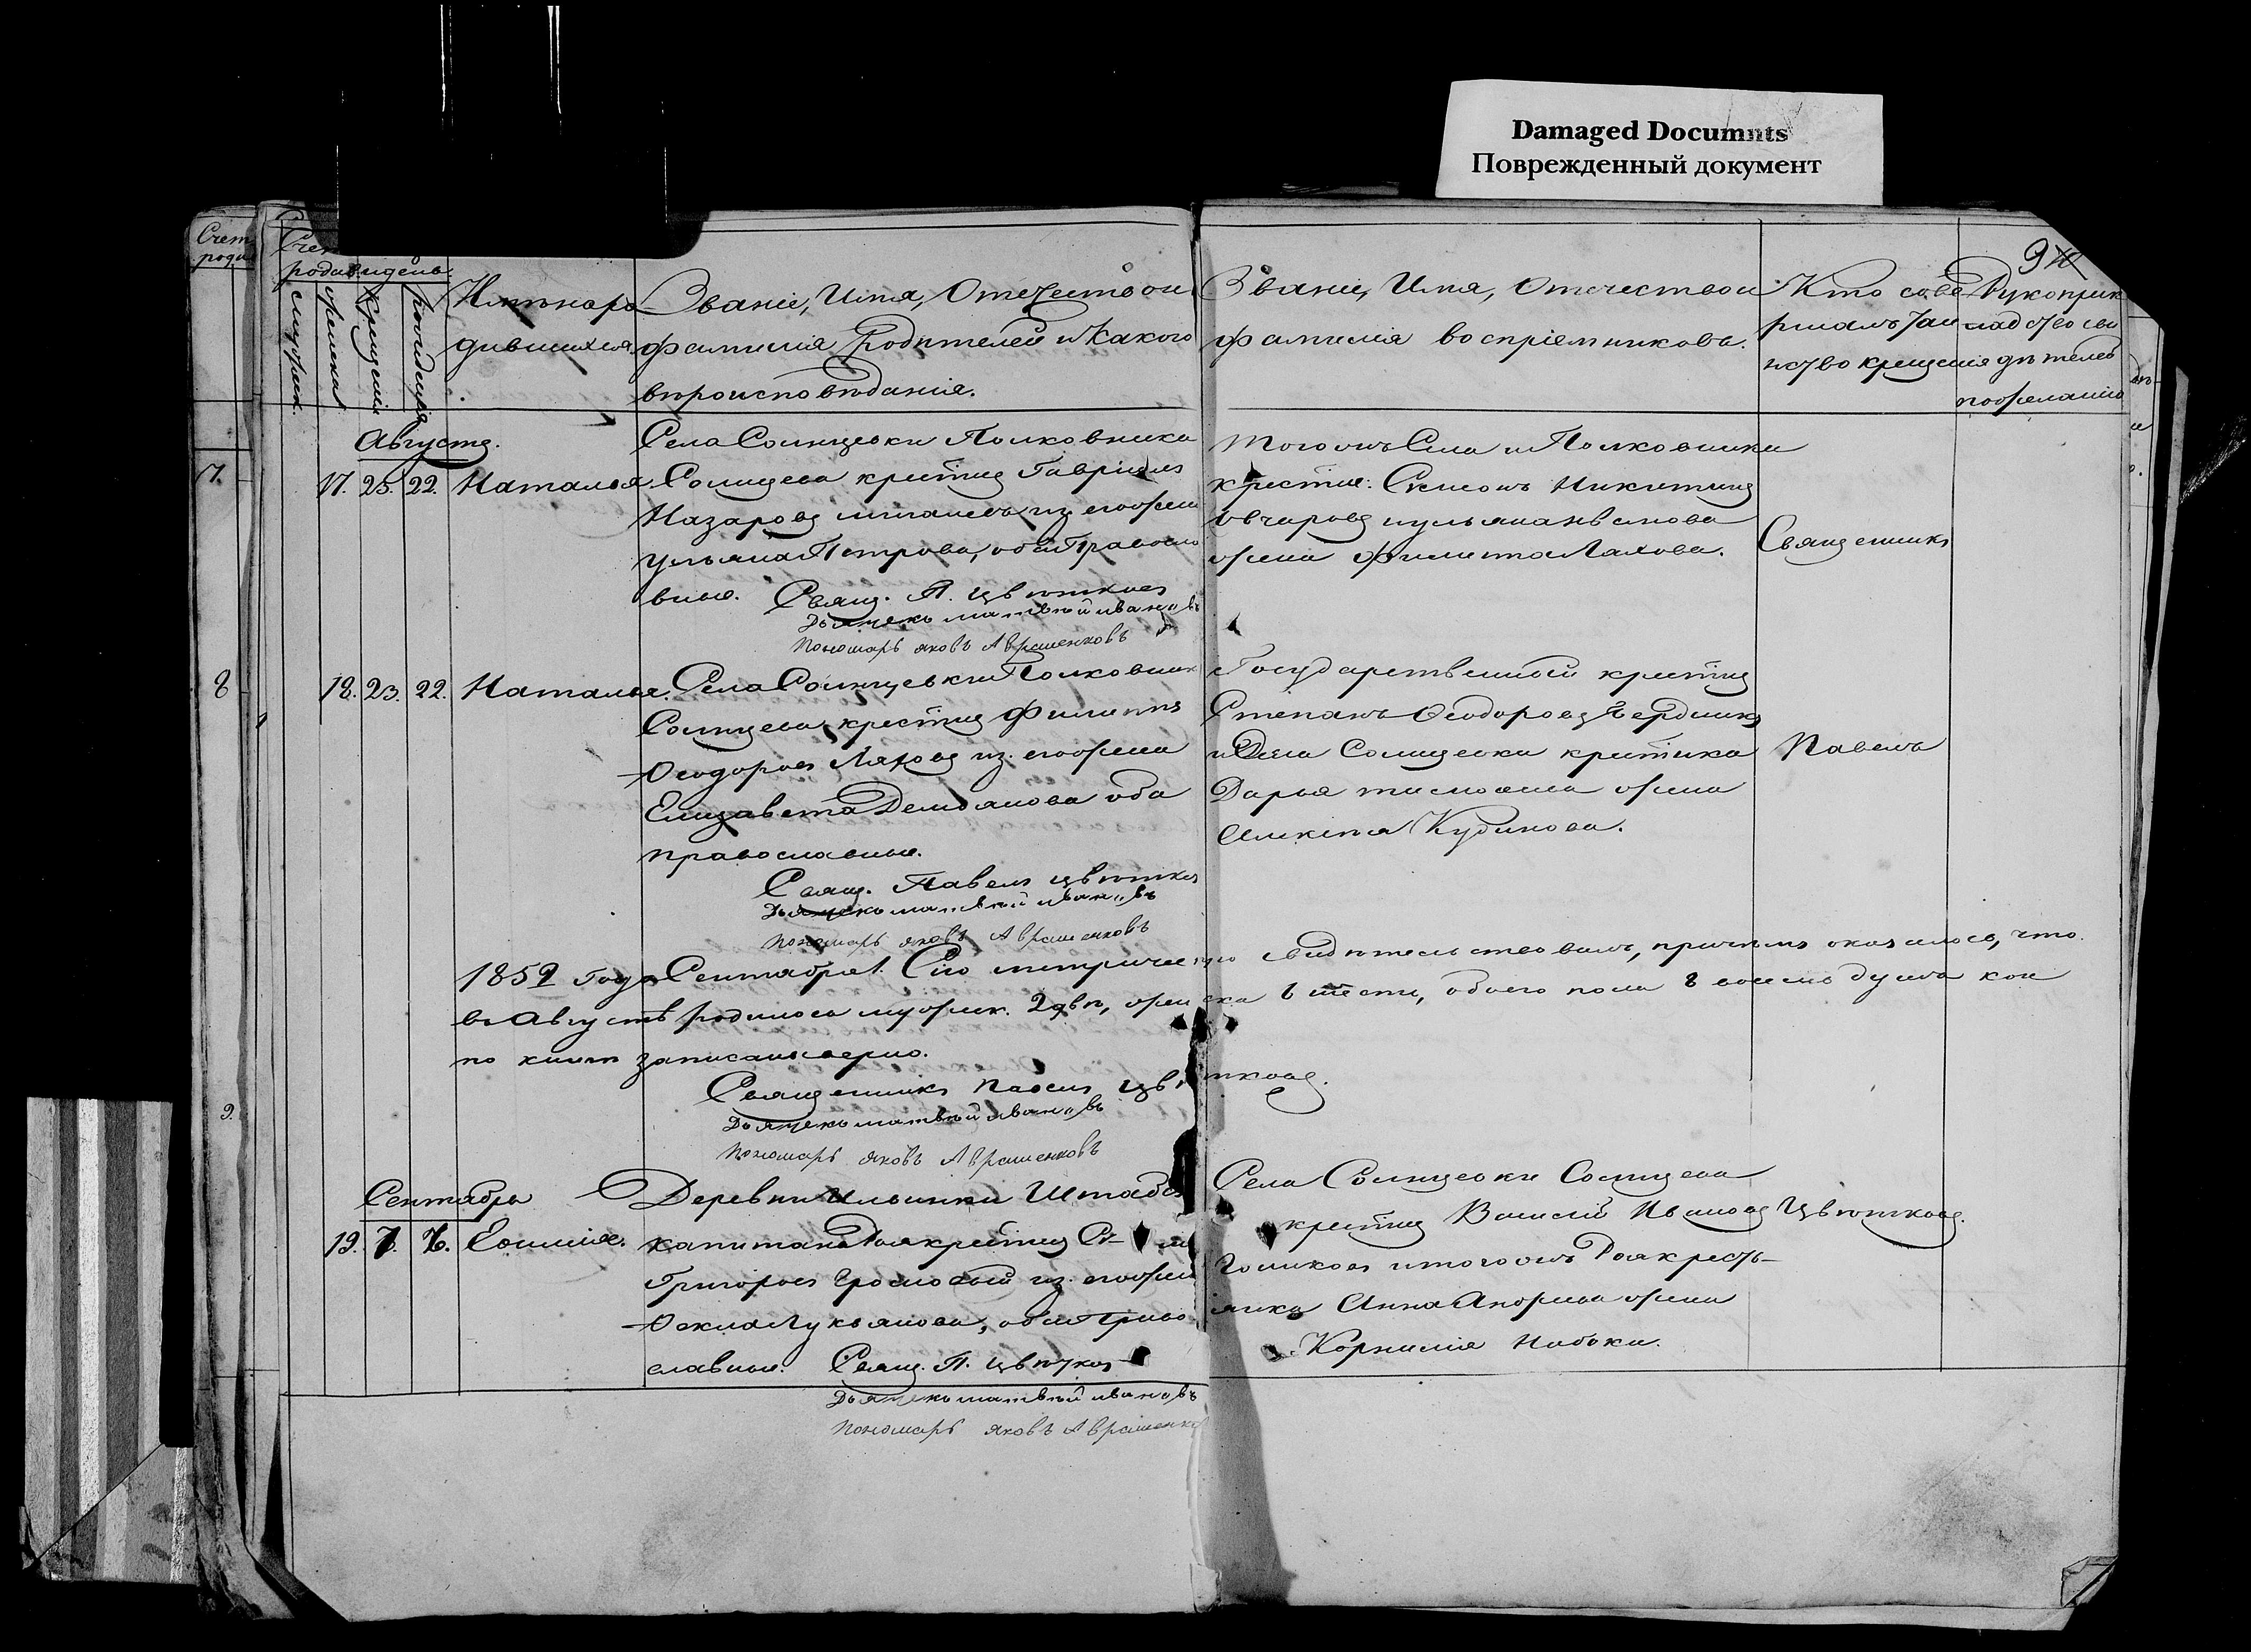 Damaged Documnts
Поврежденный документ
Счет
роди
9
родив. и день.
мужеск.
женска
Крещенія
рожденія
Имѣна ро
дившихся.
Званіе, Имя, Отечество и
фамилія родителей и Какого
вѣроисповѣданія.
Званіе, Имя, Отечество и
фамилія воспріемниковъ.
Кто сове
ршалъ Таи
нство крещенія
Рукоприк
ладство сви
дѣтелей
по желанію
7.
Августъ.
17. 23. 22. Наталья
Села Солнцевки Полковника
Солнцева крестян Гавріилъ
Назаровъ из его жена
Ульяна Петрова, оба Правосла
вные. Свящ. П. Цвѣтковъ
Дьячекъ Матвѣй Ивановъ
Пономарь Яковъ Авраменковъ
Того же Села и Полковника
крестян: Семенъ Никитинъ
Овчаровъ и Ульяна Иванова
жена Филипа Ляхова.
Священникъ
8
18. 23. 22. Наталья.
Села Солнцевки Полковник
Солнцева крестян Филиппъ
Ѳеодоровъ Ляховъ из. его жена
Елизавета Демьянова оба
православные.
Свящ. Павелъ Цвѣтков
Дьячекъ Матвѣй Ивановъ
Пономарь Яковъ Авраменковъ
Государственной крестян
Степанъ Ѳеодоровъ Бердникъ
и Села Солнцевки крестянка
Дарья жена
Алексѣя Кудинова.
Павелъ
1859 года Сентября 1. Сію метрическую свидѣтельствовалъ, причемъ оказалось, что
въ Августѣ родилось мужеск. 2 двѣ, женска 6 шесть, обоего пола 8 восемь душъ кои
по книгѣ записаны верно.
Священникъ Павелъ Цвѣтковъ.
Дьячекъ Матвѣй Ивановъ
Пономарь Яковъ Авраменковъ
9.
Сентябрь
19. 7. 6. Евфимія.
Деревни Ильинки Штабсъ
капитана Роя крестян
Григорьев Громовый из. его жен
Ѳекла Лукьянова, оба Право
славные. Свящ. П. Цвѣтков
Дьячекъ Матвѣй Ивановъ
Пономарь Яковъ Авраменко
Села Солнцевки Солнцева
крестян Василій Ивановъ
Голиков и того жъ Роя кресть-
янка Анна Андреева жена
Корнилія Набоки.
Цвѣтковъ.